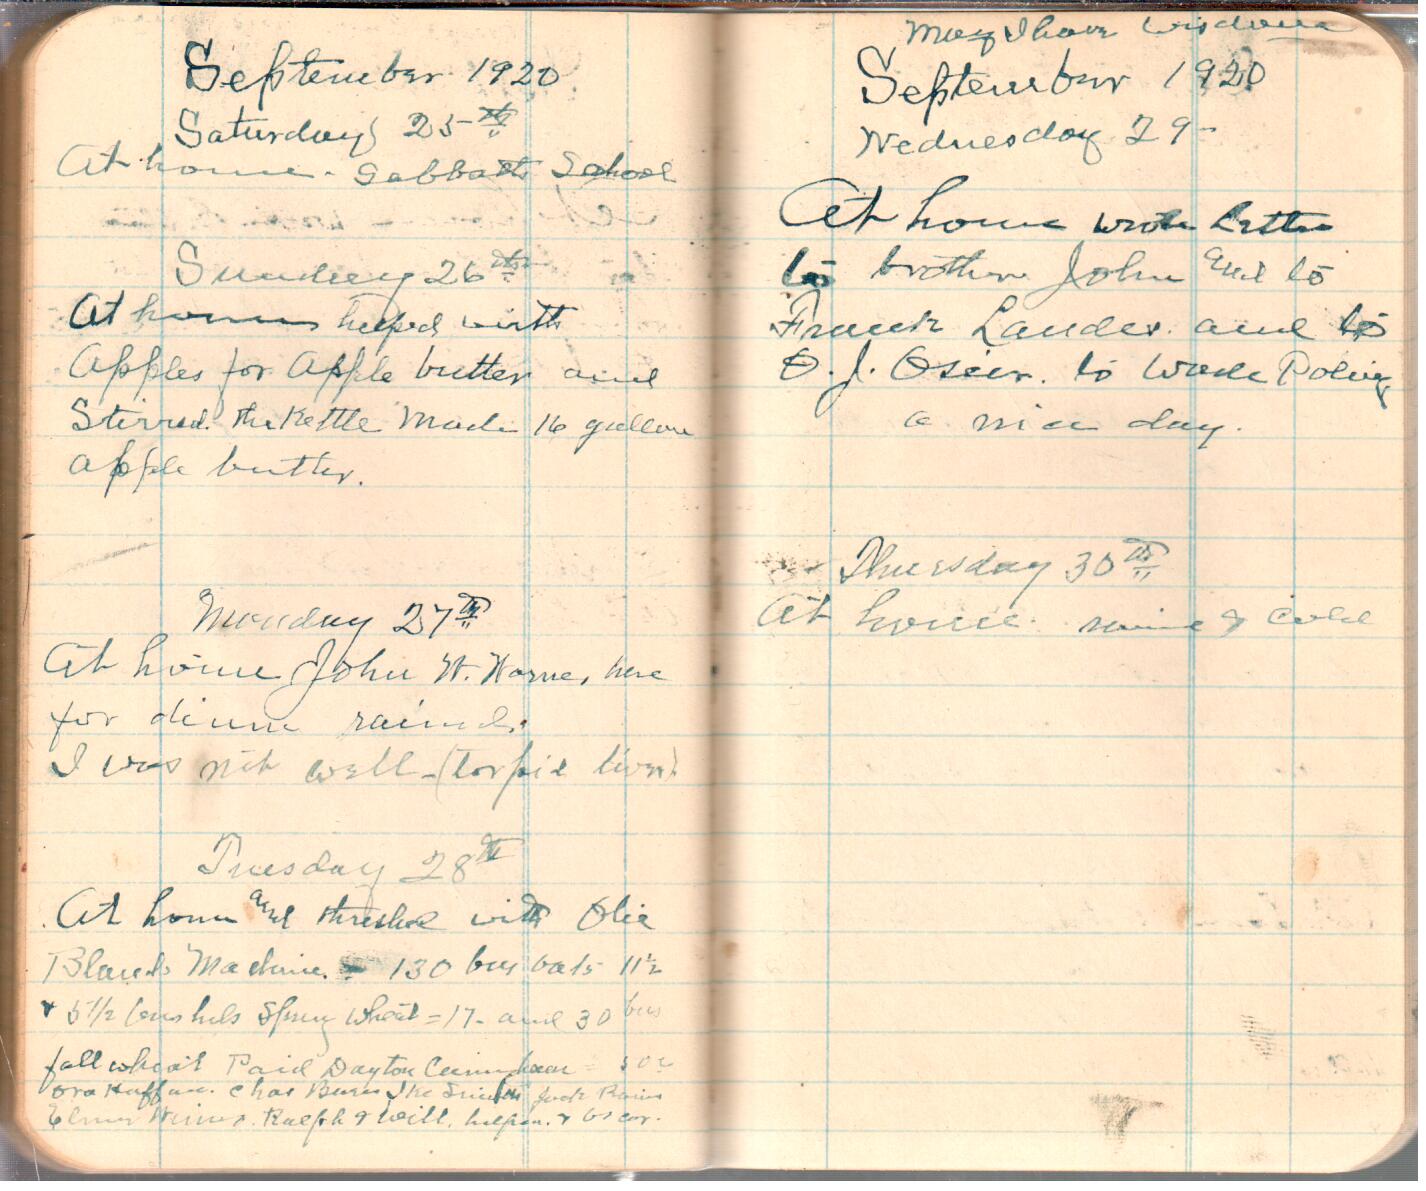 September 1920
Saturday 25th
At home. Sabbath School
Sunday 26th
At home helped with
Apples for Apple butter and
Stirred the Kettle Made 16 gallons
apple butter.
Monday 27th
At home John W. Warner here
for dinner rained.
I was not well (torpid liver)
Tuesday 28th
At home and threshed with Olie
Blands Machine. 130 bus oats 11½
& 5½ bushels Spring Wheat = 17 - and 30 bus
fall wheat Paid Dayton Cunningham
Ora Huffman. Chas Burns Ike Smith Jack
Elmer Ralph & Will.
May I have wisdom
September 1920
Wednesday 29
At home wrote letter
to brother John and to
Frank Landes. and to
O. J. to Wade
a nice day.
Thursday 30th
At home. & cold